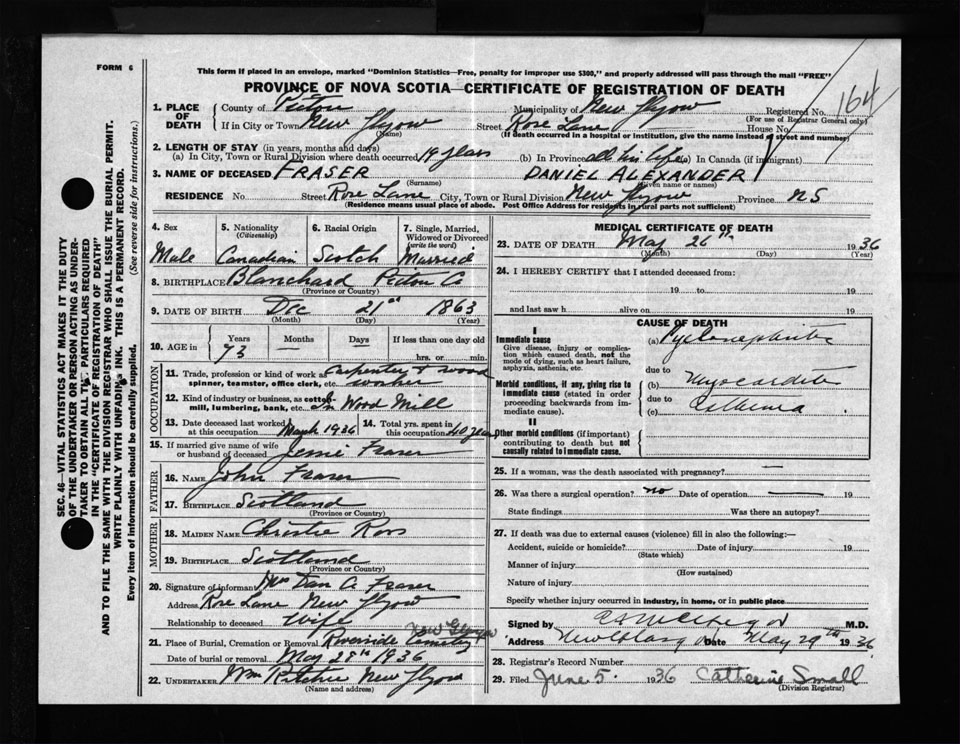 FORM 6
This form if placed in an envelope, marked "Dominion Statistics—Free, penalty for improper use $300," and properly addressed will pass through the mail "FREE"
PROVINCE OF NOVA SCOTIA—CERTIFICATE OF REGISTRATION OF DEATH
164
1. PLACE OF DEATH
County of Pictou Municipality of New Glasgow Registered No.
(For use of Registrar General only)
If in City or Town New Glasgow Street Rose Lane House No.
(Name) (If death occurred in a hospital or institution, give the name instead of street and number)
2. LENGTH OF STAY (in years, months and days)
(a) In City, Town or Rural Division where death occurred 19 years (b) In Province all his life (c) In Canada (if immigrant)
3. NAME OF DECEASED FRASER DANIEL ALEXANDER
(Surname) (Given name or names)
RESIDENCE No. Street Rose Lane City, Town or Rural Division New Glasgow Province NS
(Residence means usual place of abode. Post Office Address for residents in rural parts not sufficient)
4. Sex 5. Nationality (Citizenship) 6. Racial Origin 7. Single, Married, Widowed or Divorced (write the word)
Male Canadian Scotch Married
8. BIRTHPLACE Blanchard Pictou Co
(Province or Country)
9. DATE OF BIRTH Dec 21st 1863
(Month) (Day) (Year)
10. AGE in Years Months Days If less than one day old
73 — — hrs. or min.
OCCUPATION
11. Trade, profession or kind of work as spinner, teamster, office clerk, etc. Carpenter & wood worker
12. Kind of industry or business, as cotton mill, lumbering, bank, etc. In Wood Mill
13. Date deceased last worked at this occupation March 1936 14. Total yrs. spent in this occupation 40 years
15. If married give name of wife or husband of deceased Jessie Fraser
FATHER
16. NAME John Fraser
17. BIRTHPLACE Scotland
(Province or Country)
MOTHER
18. MAIDEN NAME Christie Ross
19. BIRTHPLACE Scotland
(Province or Country)
20. Signature of informant Mrs Dan A Fraser
Address Rose Lane New Glasgow
Relationship to deceased Wife
21. Place of Burial, Cremation or Removal Riverside Cemetery New Glasgow
Date of burial or removal May 28th 1936
22. UNDERTAKER Wm Ritchie New Glasgow
(Name and address)
MEDICAL CERTIFICATE OF DEATH
23. DATE OF DEATH May 26th 1936
(Month) (Day) (Year)
24. I HEREBY CERTIFY that I attended deceased from:
19 to 19
and last saw h alive on 19
CAUSE OF DEATH
I
Immediate cause
Give disease, injury or complication which caused death, not the mode of dying, such as heart failure, asphyxia, asthenia, etc.
(a) Pyelonephritis
due to
Morbid conditions, if any, giving rise to immediate cause (stated in order proceeding backwards from immediate cause).
(b) Myocarditis
due to
(c)
II
Other morbid conditions (if important) contributing to death but not causally related to immediate cause.
25. If a woman, was the death associated with pregnancy? —
26. Was there a surgical operation? no Date of operation — 19
State findings Was there an autopsy?
27. If death was due to external causes (violence) fill in also the following:—
Accident, suicide or homicide? Date of injury 19
(State which)
Manner of injury
(How sustained)
Nature of injury
Specify whether injury occurred in industry, in home, or in public place
Signed by M.D.
Address New Glasgow Date May 29th 1936
28. Registrar's Record Number
29. Filed June 5 1936 Catherine Small
(Division Registrar)
SEC. 46—VITAL STATISTICS ACT MAKES IT THE DUTY
OF THE UNDERTAKER OR PERSON ACTING AS UNDER-
TAKER TO OBTAIN ALL THE PARTICULARS REQUIRED
IN THE "CERTIFICATE OF REGISTRATION OF DEATH"
AND TO FILE THE SAME WITH THE DIVISION REGISTRAR WHO SHALL ISSUE THE BURIAL PERMIT.
WRITE PLAINLY WITH UNFADING INK. THIS IS A PERMANENT RECORD.
Every item of information should be carefully supplied. (See reverse side for instructions.)